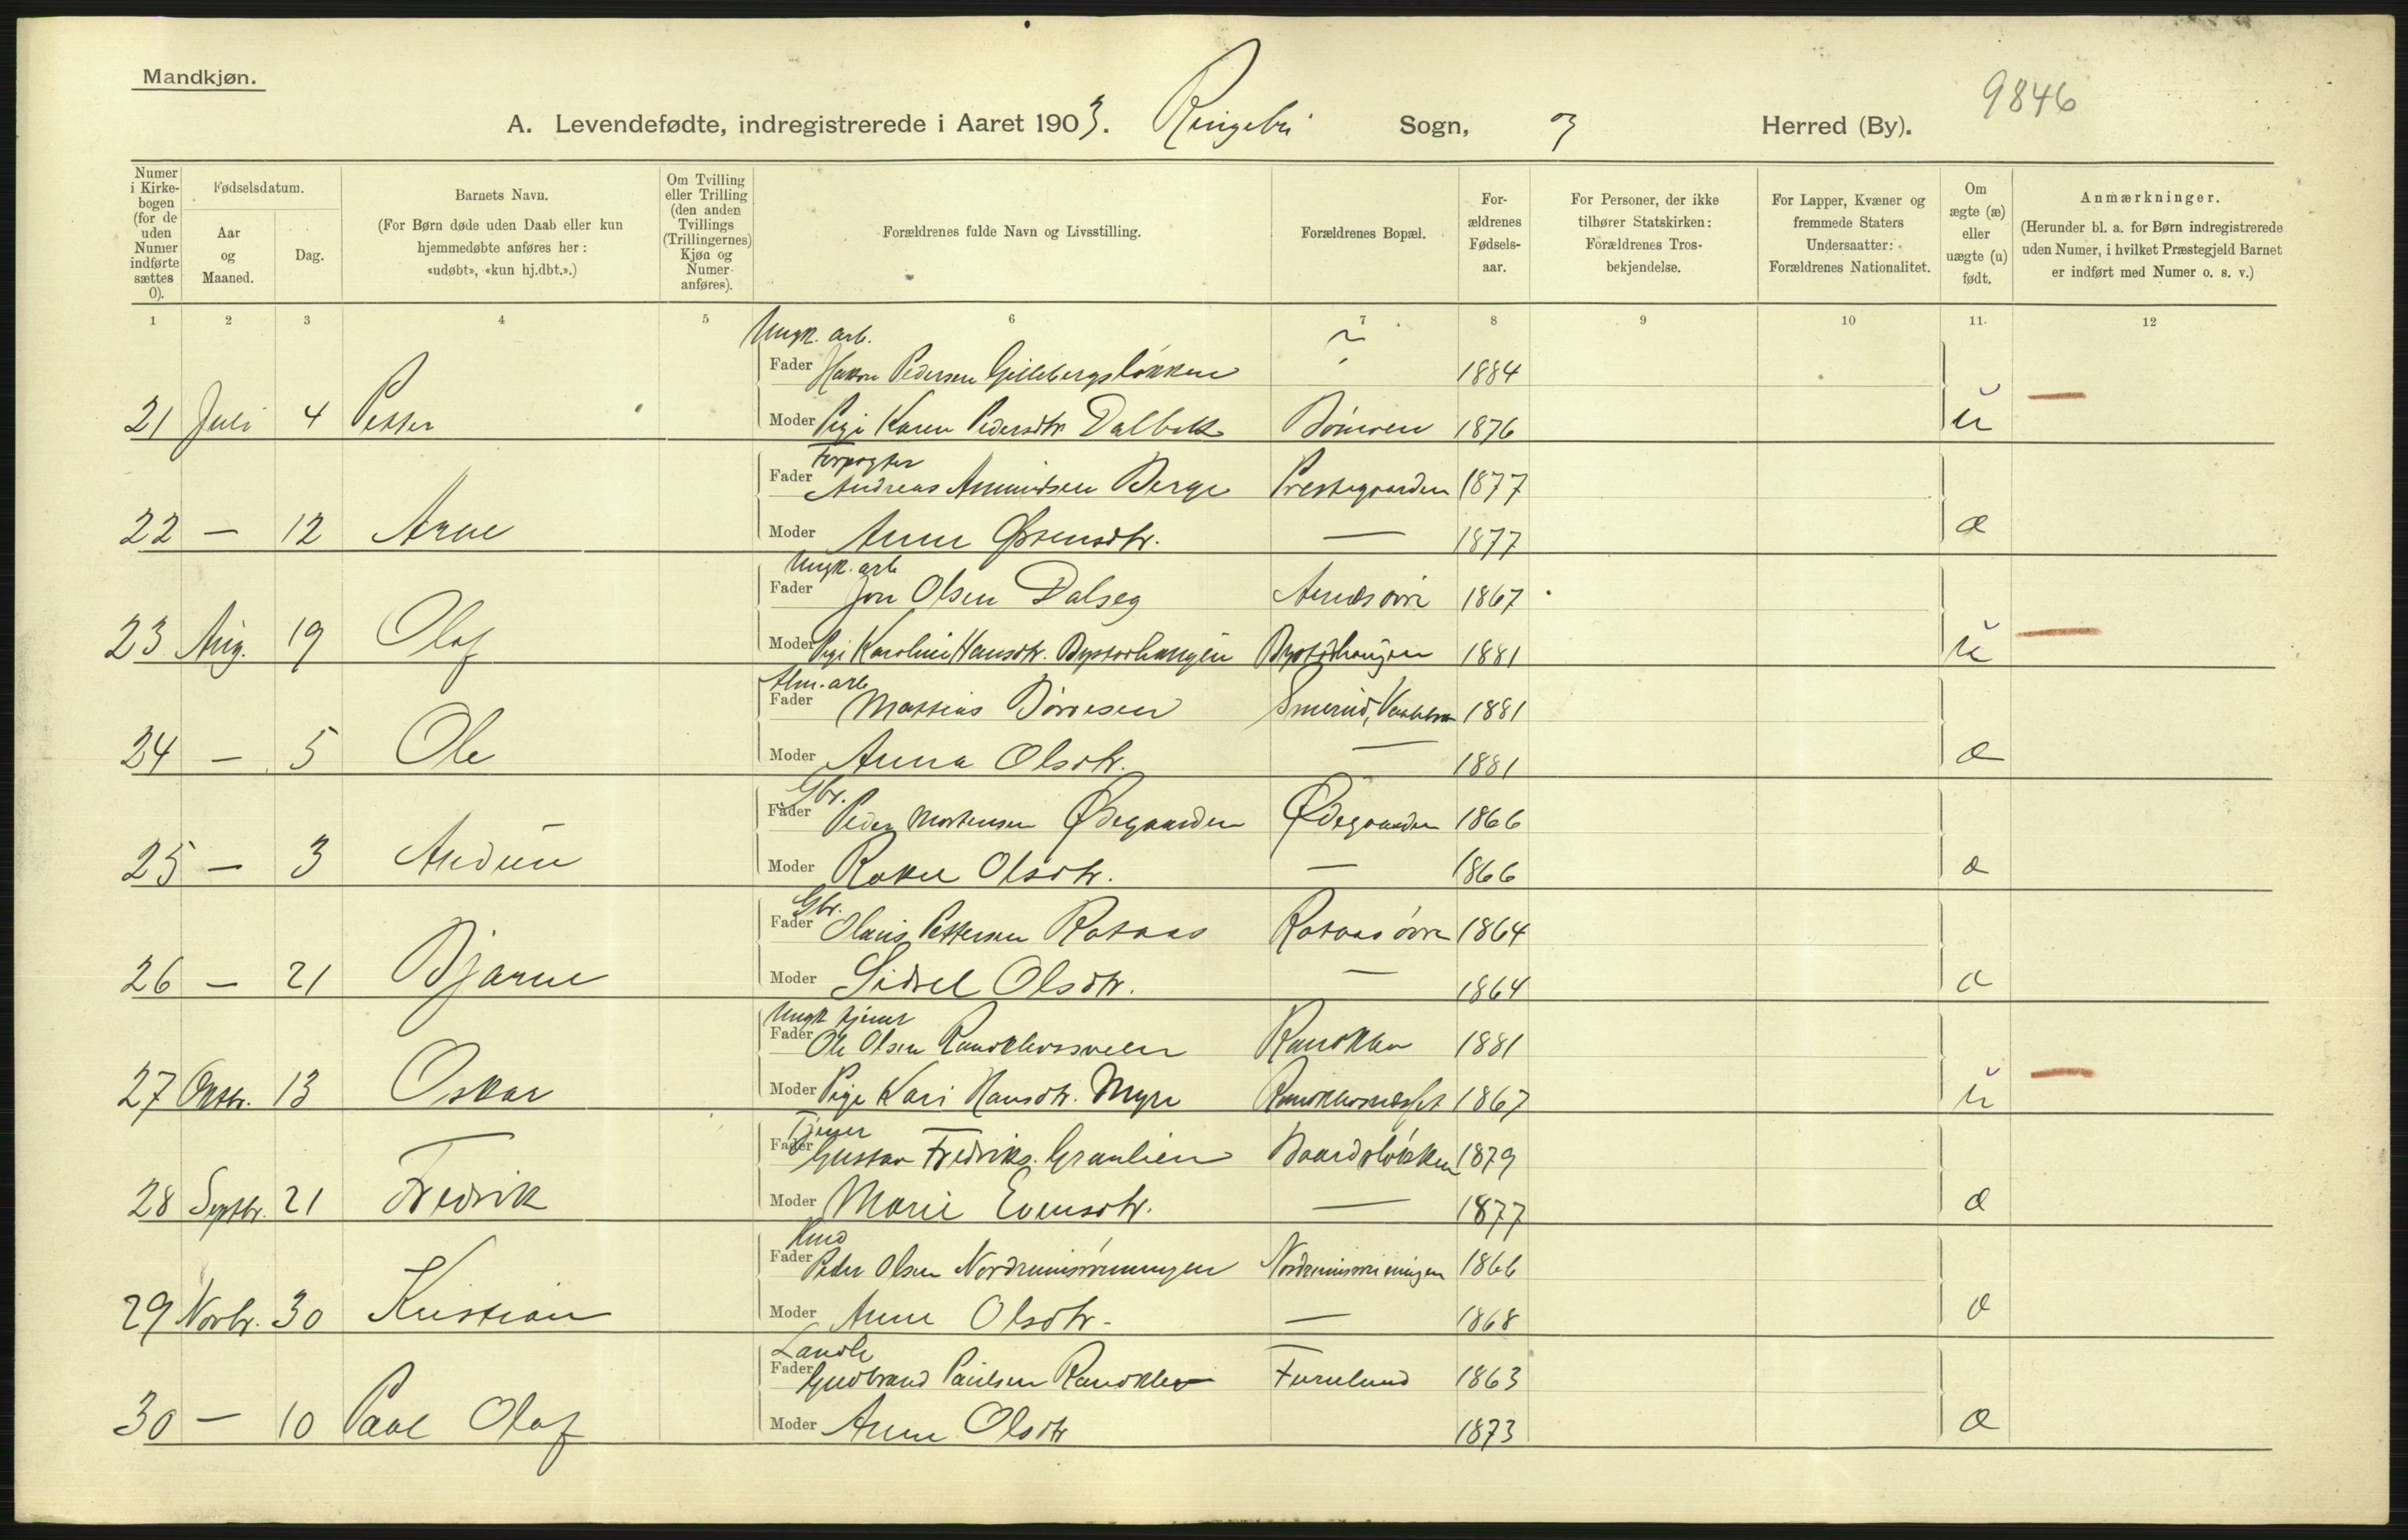 Mandkjøn.
9846
A. Levendefødte, indregistrerede i Aaret 1903. Ringebu Sogn, og Herred (By).
Numer i Kirkebogen (for de uden Numer indførte sættes 0).
Fødselsdatum.
Aar og Maaned.
Dag.
Barnets Navn.
(For Børn døde uden Daab eller kun hjemmedøbte anføres her: «udøbt», «kun hj.dbt.».)
Om Tvilling eller Trilling (den anden Tvillings (Trillingernes) Kjøn og Numer anføres).
Forældrenes fulde Navn og Livsstilling.
Forældrenes Bopæl.
Forældrenes Fødselsaar.
For Personer, der ikke tilhører Statskirken: Forældrenes Trosbekjendelse.
For Lapper, Kvæner og fremmede Staters Undersaatter: Forældrenes Nationalitet.
Om ægte (æ) eller uægte (u) født.
Anmærkninger.
(Herunder bl. a. for Børn indregistrerede uden Numer, i hvilket Præstegjeld Barnet er indført med Numer o. s. v.)
1 2 3 4 5 6 7 8 9 10 11. 12
Ungk. arb.
Fader Hakon Pedersen Gillebergsløkken 1884
21 Juli 4 Petter Moder Pige Karen Pedersdtr Dalbek 1876 u —
Forpagter
Fader Andreas Amundsen Berge Prestegaarden 1877
22 — 12 Arne Moder Anne Østensdtr. — 1877 æ
Ungk. arb
Fader Jon Olsen Dalseg 1867
23 Aug. 19 Olaf Moder Pige Karoline Hansdtr. 1881 u —
Alm. arb
Fader Mattias 1881
24 — 5 Ole Moder Anna Olsdtr. — 1881 æ
Gbr.
Fader Peder Mortensen Ødegaarden Ødegaarden 1866
25 — 3 Audun Moder Rakel Olsdtr. — 1866 æ
Gbr.
Fader Olaus Pettersen Rataas Rataas øvre 1864
26 — 21 Bjarne Moder Sidsel Olsdtr. — 1864 æ
Ungk tjener
Fader Ole Olsen Randklevsveen Randklev 1881
27 Oktbr. 13 Oskar Moder Pige Kari Hansdtr. Myre 1867 u —
Tjener
Fader Gustav Fredriks. Granlien Baardsløkken 1879
28 Septbr. 21 Fredrik Moder Marie Evensdtr. — 1877 æ
Fader Peder Olsen 1866
29 Novbr. 30 Kristian Moder Anne Olsdtr. — 1868 æ
Landh
Fader Gudbrand Paulsen Randklev Furulund 1863
30 — 10 Paal Olaf Moder Anne Olsdtr 1873 æ